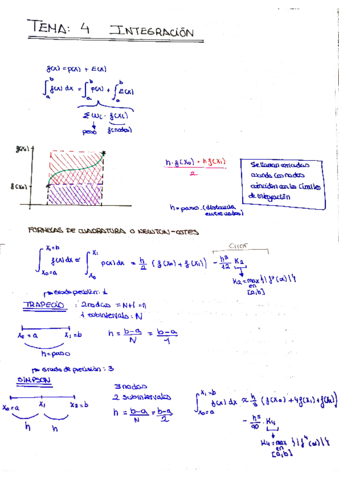 TEMA: 4 INTEGRACIÓN
f(x) = p(x) + E(x)
∫_a^b f(x) dx = ∫_a^b p(x) + ∫_a^b E(x)
Σ Wi · f(x)
peso f(nodos)
f(x1)
f(x0)
h · f(x0) + h f(x1)
2
h = paso (distancia
Se llaman cerradas
cuando los nodos
coinciden con los límites
de integración
FÓRMULAS DE CUADRATURA O NEWTON-COTES
∫_{x0=a}^{x1=b} f(x) dx ≈ ∫_{x0}^{x1} p(x) dx = h/2 (f(x0) + f(x1)) - h³/12 K2
K2 = max en [a,b] {|f''(x)|}
Grado precisión: 1
TRAPECIO : 2 nodos = N+1 = n
1 subintervalo: N
x0 = a x1 = b
h = paso
h = b-a/N = b-a/1
Grado de precisión: 3
SIMPSON
3 nodos
2 subintervalos
x0=a x1 x2 = b
h h
h = b-a/N = b-a/2
f(x) dx ≈ h/3 (f(x0) + 4f(x1) + f(x2))
- h⁵/90 · K4
K4 = max [a,b] {|f⁴(x)|}